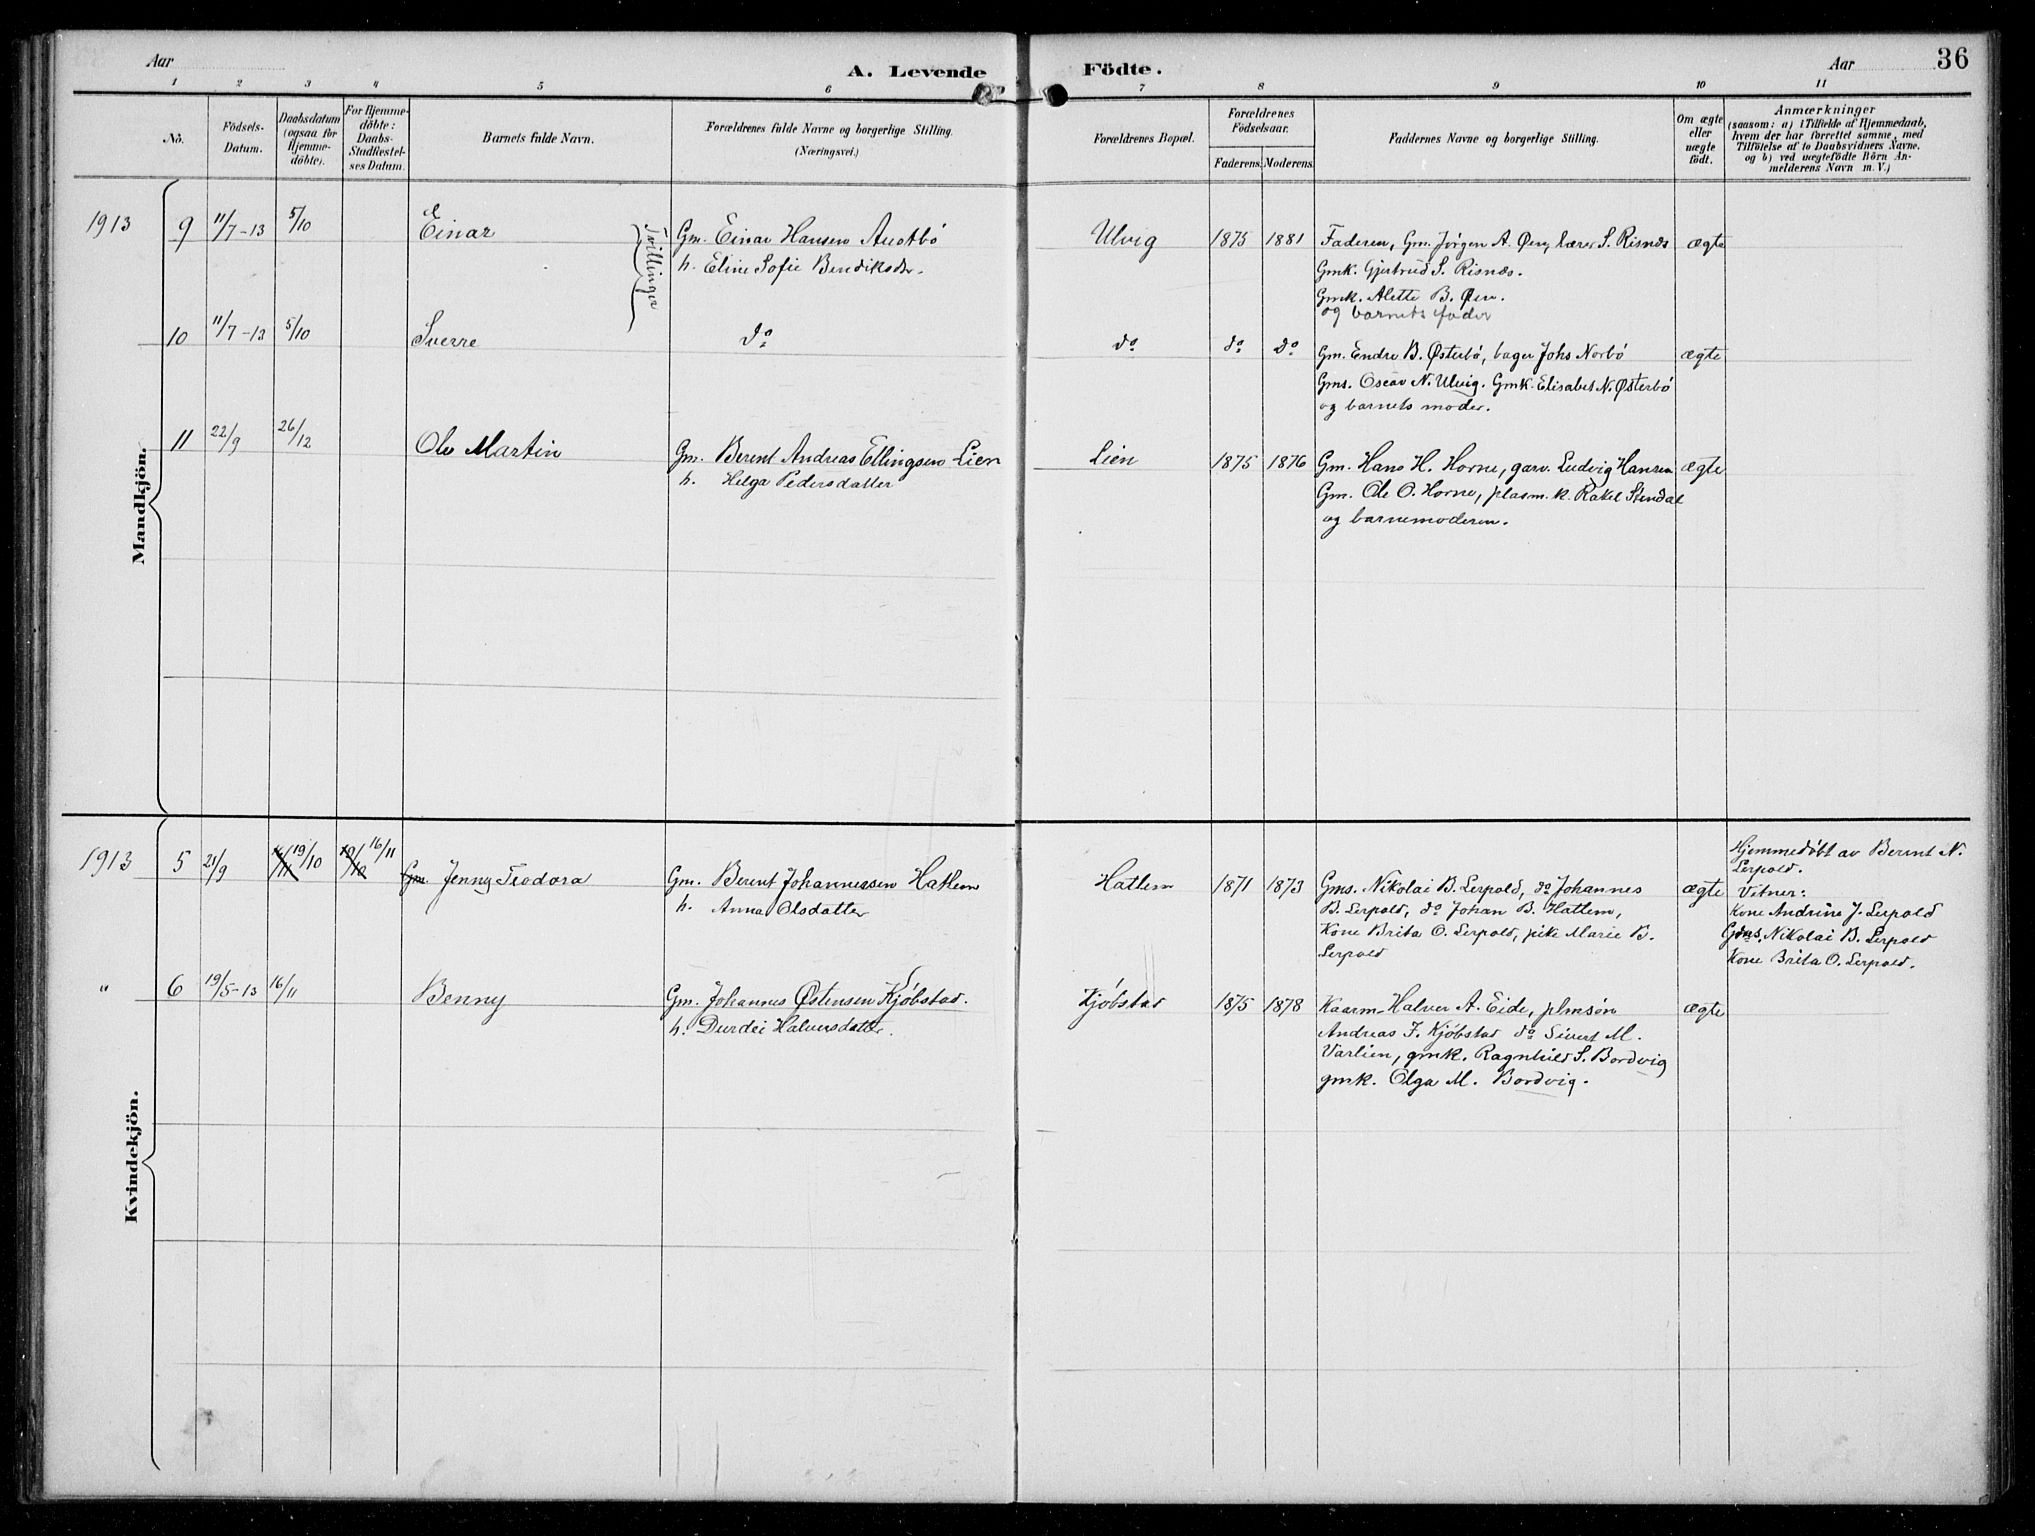 Aar
A. Levende Födte.
Aar 36
1 2 3 4 5 6 7 8 9 10 11
No.
Födsels-Datum.
Daabsdatum (ogsaa for Hjemme-döbte).
For Hjemme-döbte: Daabs-Stadfæstel-ses Datum.
Barnets fulde Navn.
Forældrenes fulde Navne og borgerlige Stilling.
(Næringsvei.)
Forældrenes Bopæl.
Forældrenes Födselsaar.
Faderens. Moderens.
Faddernes Navne og borgerlige Stilling.
Om ægte eller uægte födt.
Anmærkninger
(saasom: a) i Tilfælde af Hjemmedaab,
hvem der har forrettet samme, med
Tilföielse af to Daabsvidners Navne,
og b) ved uægtefödte Börn An-
melderens Navn m. V.)
Mandkjön.
1913 9 11/7-13 5/10 Einar Tvillinger Gm. Einar Hansen Austbö Ulvig 1875 1881 Faderen, Gm. Jörgen A. Øen, lærer S. Risnæs ægte
h. Eline Sofie Bendiksdr. Gmk. Gjertrud S. Risnæs.
Gmk. Alette B. Øen.
og barnets fader
10 11/7-13 5/10 Sverre do do do do Gm. Endre B. Østerbö, bager Johs Norbö ægte
Gms. Oscar N. Ulvig. Gmk. Elisabet N. Østerbö
og barnets moder.
11 22/9 26/12 Ole Martin Gm. Berent Andreas Ellingsen Lien Lien 1875 1876 Gm. Hans H. Horne, garv. Ludvig Hansen ægte
h. Helga Pedersdatter Gm. Ole O. Horne, plasm. k. Rakel Stendal
og barnemoderen.
Kvindekjön.
1913 5 21/9 16/11 19/10 19/10 16/11 Gm. Jenny Teodora Gm. Berent Johannessen Hatlem Hatlem 1871 1873 Gms. Nikolai B. Lerpold, do Johannes ægte
h. Anna Olsdatter B. Lerpold, do Johan B. Hatlem,
Kone Brita O. Lerpold, pike Marie B.
Lerpold
Hjemmedöbt av Berent N.
Lerpold.
Vitner:
Kone Andrine J. Lerpold
Gms. Nikolai B. Lerpold
Kone Brita O. Lerpold.
" 6 19/5-13 16/11 Benny Gm. Johannes Østensen Kjöbstad. Kjöbstad 1875 1878 Kaarm. Halver A. Eide, plmsön ægte
h. Durdei Halversdatter. Andreas J. Kjöbstad do Sivert M.
Varlien, gmk. Ragnhild S. Bordvig
gmk. Olga M. Bordvig.